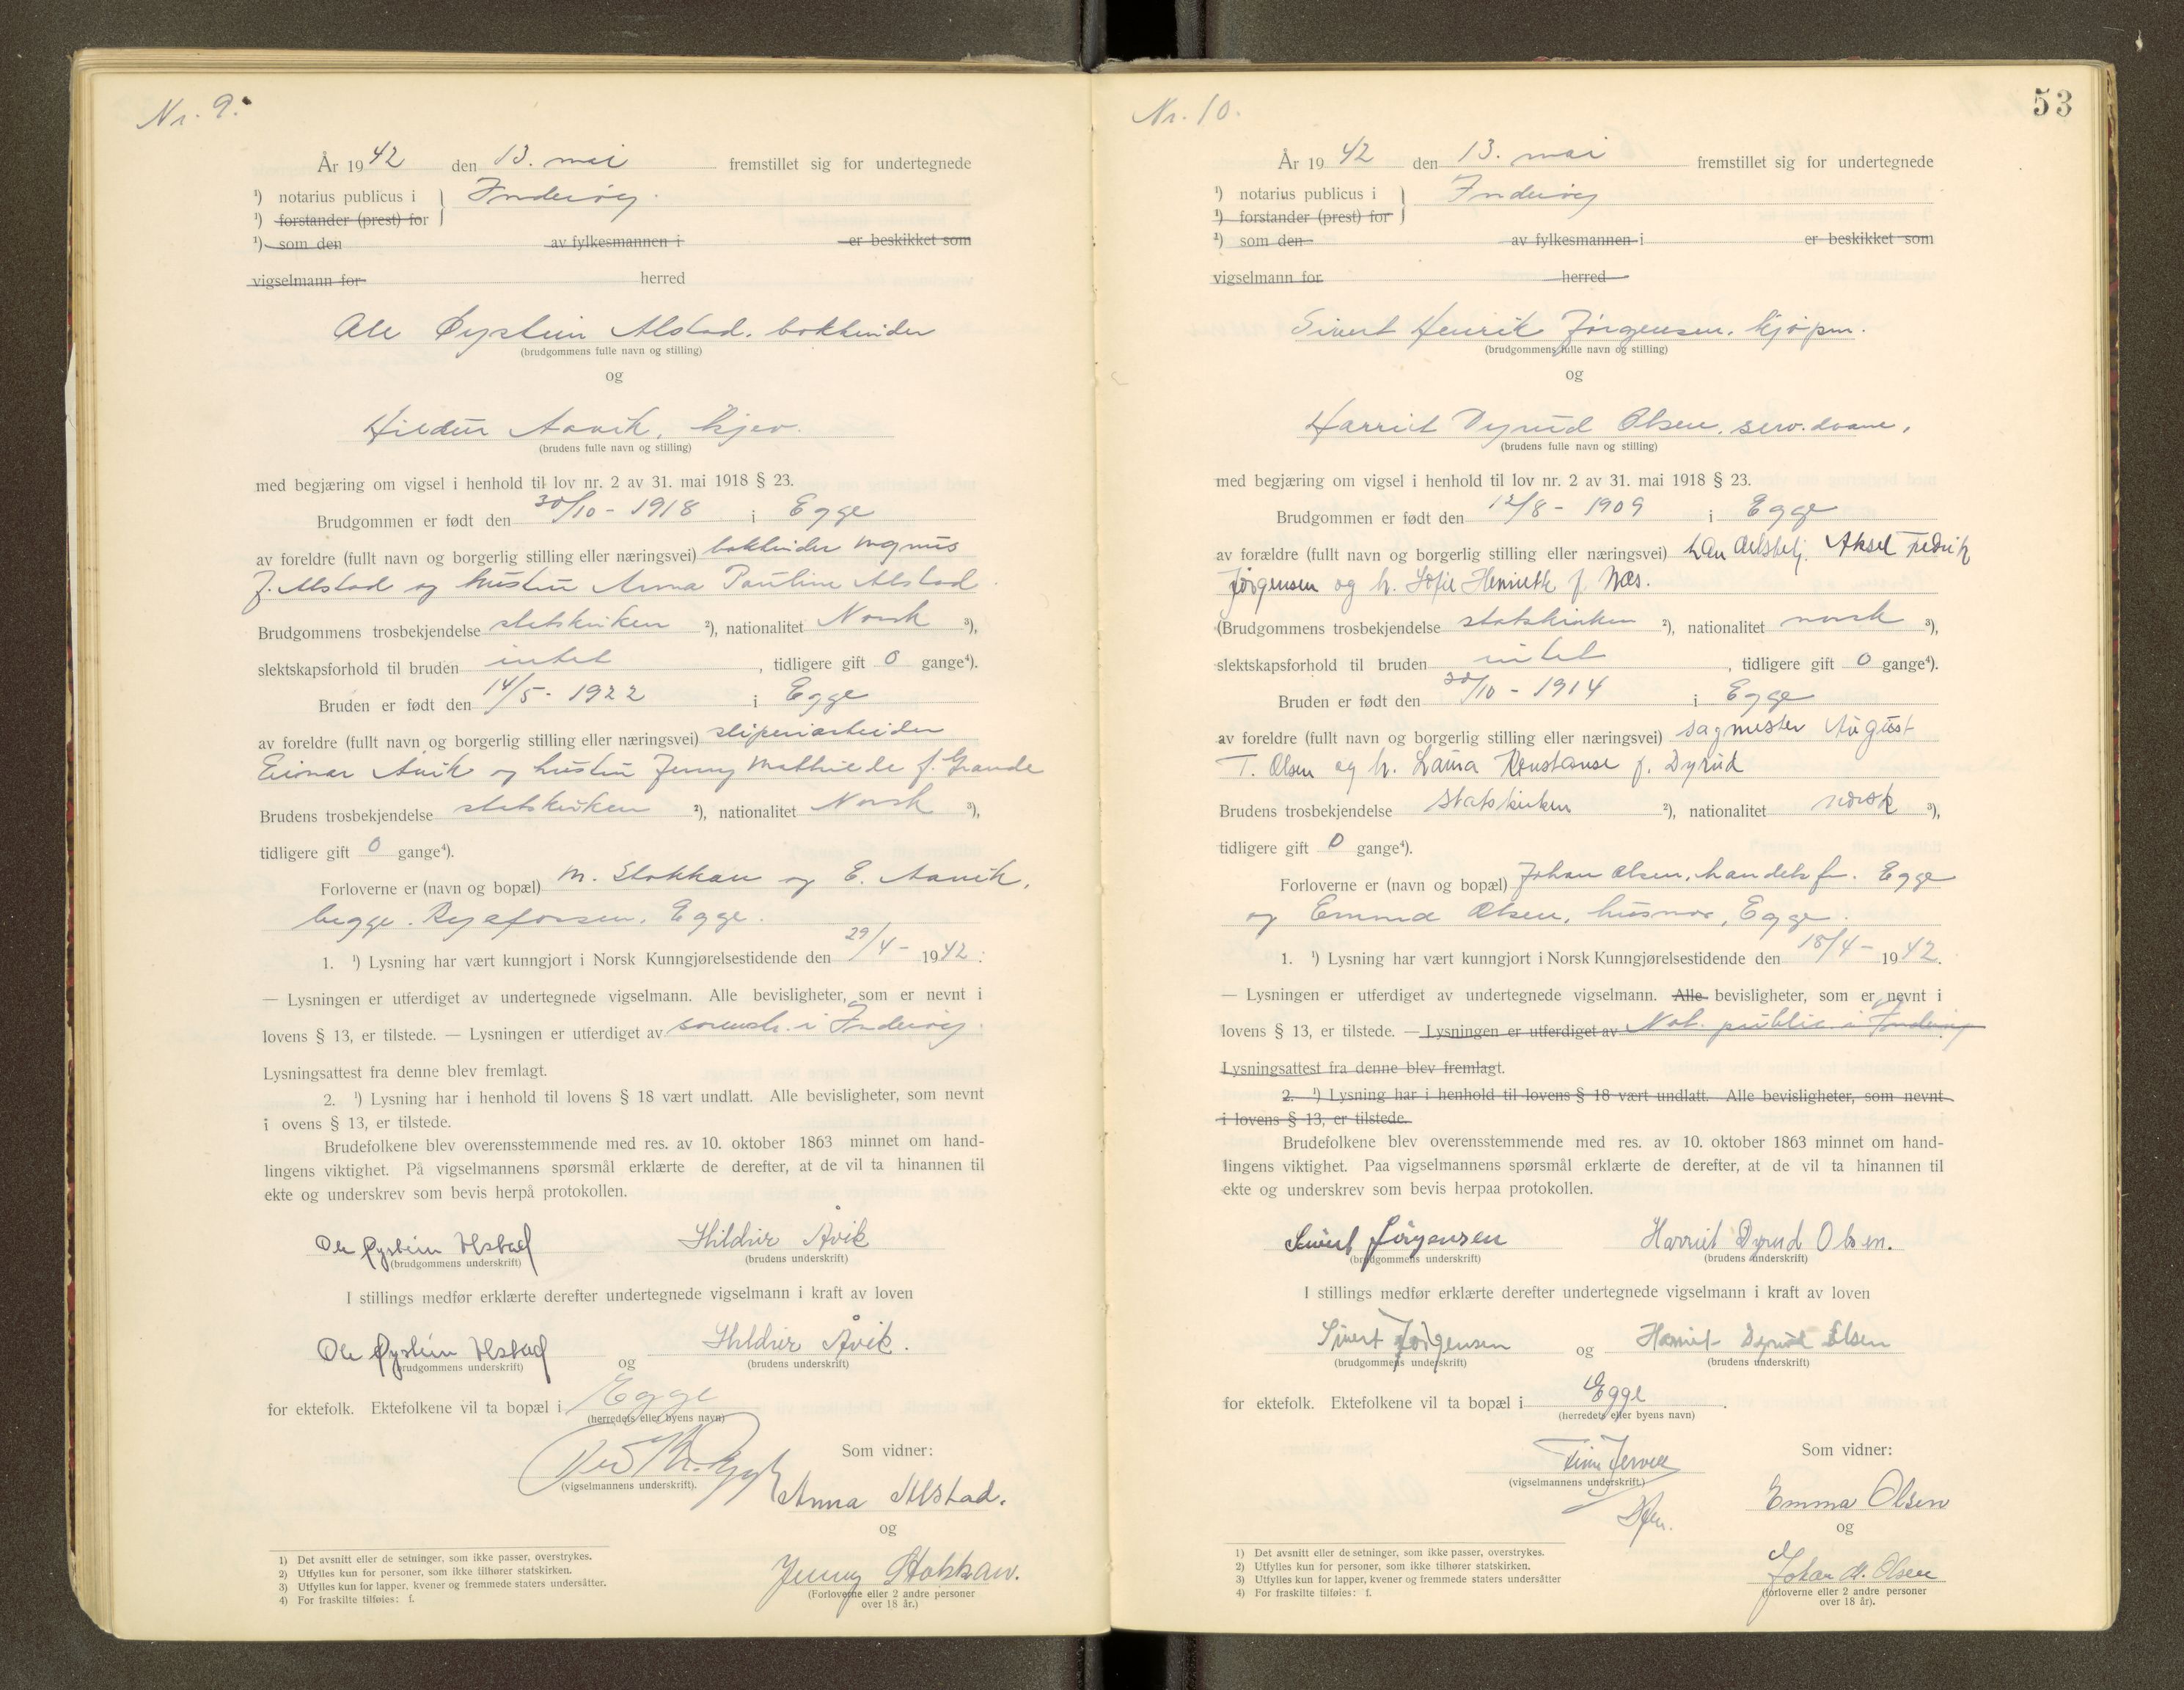 Nr. 9.
År 1942 den 13. mai fremstillet sig for undertegnede
¹) notarius publicus i } Inderøy.
¹) forstander (prest) for
¹) som den av fylkesmannen i er beskikket som
vigselmann for herred
Ole Øystein Alstad, bokbinder
(brudgommens fulle navn og stilling)
og
Hildur Aavik, hjev.
(brudens fulle navn og stilling)
med begjæring om vigsel i henhold til lov nr. 2 av 31. mai 1918 § 23.
Brudgommen er født den 30/10 - 1918 i Egge
av foreldre (fullt navn og borgerlig stilling eller næringsvei) bokbinder Magnus
J. Alstad og hustru Anna Pauline Alstad
Brudgommens trosbekjendelse statskirken ²), nationalitet Norsk ³),
slektskapsforhold til bruden intet, tidligere gift 0 gange⁴).
Bruden er født den 14/5 - 1922 i Egge
av foreldre (fullt navn og borgerlig stilling eller næringsvei) sliperiarbeider
Einar Avik og hustru Jenny Mathilde f. Grande
Brudens trosbekjendelse statskirken ²), nationalitet Norsk ³),
tidligere gift 0 gange⁴).
Forloverne er (navn og bopæl) M. Stokkan og E. Aavik,
begge Byafossen, Egge.
1. ¹) Lysning har vært kunngjort i Norsk Kunngjørelsestidende den 29/4 - 1942.
— Lysningen er utferdiget av undertegnede vigselmann. Alle bevisligheter, som er nevnt i
lovens § 13, er tilstede. — Lysningen er utferdiget av sorensk. i Inderøy.
Lysningsattest fra denne blev fremlagt.
2. ¹) Lysning har i henhold til lovens § 18 vært undlatt. Alle bevisligheter, som nevnt
i ovens § 13, er tilstede.
Brudefolkene blev overensstemmende med res. av 10. oktober 1863 minnet om hand-
lingens viktighet. På vigselmannens spørsmål erklærte de derefter, at de vil ta hinannen til
ekte og underskrev som bevis herpå protokollen.
Ole Øystein Alstad Hildur Åvik
(brudgommens underskrift) (brudens underskrift)
I stillings medfør erklærte derefter undertegnede vigselmann i kraft av loven
Ole Øystein Alstad og Hildur Åvik.
(brudgommens underskrift) (brudens underskrift)
for ektefolk. Ektefolkene vil ta bopæl i Egge
(herredets eller byens navn)
Som vidner:
(vigselmannens underskrift).
Anna Alstad.
og
Jenny Stokkan.
(Forloverne eller 2 andre personer
over 18 år.)
1) Det avsnitt eller de setninger, som ikke passer, overstrykes.
2) Utfylles kun for personer, som ikke tilhører statskirken.
3) Utfylles kun for lapper, kvener og fremmede staters undersåtter.
4) For fraskilte tilføies: f.
53
Nr. 10.
År 1942 den 13. mai fremstillet sig for undertegnede
¹) notarius publicus i } Inderøy
¹) forstander (prest) for
¹) som den av fylkesmannen i er beskikket som
vigselmann for herred
Sivert Henrik Jørgensen, kjøpm.
(brudgommens fulle navn og stilling)
og
Harriet Dyrud Olsen, serv.dame,
(brudens fulle navn og stilling)
med begjæring om vigsel i henhold til lov nr. 2 av 31. mai 1918 § 23.
Brudgommen er født den 12/8 - 1909 i Egge
av forældre (fullt navn og borgerlig stilling eller næringsvei) Aksel Fredrik
Jørgensen og h. Sofie Henriette f. Næs.
(Brudgommens trosbekjendelse statskirken ²), nationalitet norsk ³),
slektskapsforhold til bruden intet, tidligere gift 0 gange⁴).
Bruden er født den 30/10 - 1914 i Egge
av foreldre (fullt navn og borgerlig stilling eller næringsvei) sagmester August
T. Olsen og h. Laura Konstanse f. Dyrud
Brudens trosbekjendelse statskirken ²), nationalitet norsk ³),
tidligere gift 0 gange⁴).
Forloverne er (navn og bopæl) Johan Olsen, handelsf. Egge
og Emma Olsen, husmor, Egge.
1. ¹) Lysning har vært kunngjort i Norsk Kunngjørelsestidende den 18/4 - 1942.
— Lysningen er utferdiget av undertegnede vigselmann. Alle bevisligheter, som er nevnt i
lovens § 13, er tilstede. — Lysningen er utferdiget av Not. public. i Inderøy
Lysningsattest fra denne blev fremlagt.
2. ¹) Lysning har i henhold til lovens § 18 vært undlatt. Alle bevisligheter, som nevnt
i lovens § 13, er tilstede.
Brudefolkene blev overensstemmende med res. av 10. oktober 1863 minnet om hand-
lingens viktighet. Paa vigselmannens spørsmål erklærte de derefter, at de vil ta hinannen til
ekte og underskrev som bevis herpaa protokollen.
Sivert Jørgensen Harriet Dyrud Olsen.
(brudgommens underskrift) (brudens underskrift)
I stillings medfør erklærte derefter undertegnede vigselmann i kraft av loven
Sivert Jørgensen og Harriet Dyrud Olsen
(brudgommens underskrift) (brudens underskrift)
for ektefolk. Ektefolkene vil ta bopæl i Egge.
(herredets eller byens navn)
Som vidner:
(vigselmannens underskrift.)
Emma Olsen
og
Johan A. Olsen
(forloverne eller 2 andre personer
over 18 år).
1) Det avsnitt eller de setninger, som ikke passer, overstrykes.
2) Utfylles kun for personer, som ikke tilhører statskirken.
3) Utfylles kun for lapper, kvener og fremmede staters undersåtter
4) For fraskilte tilføies: f.